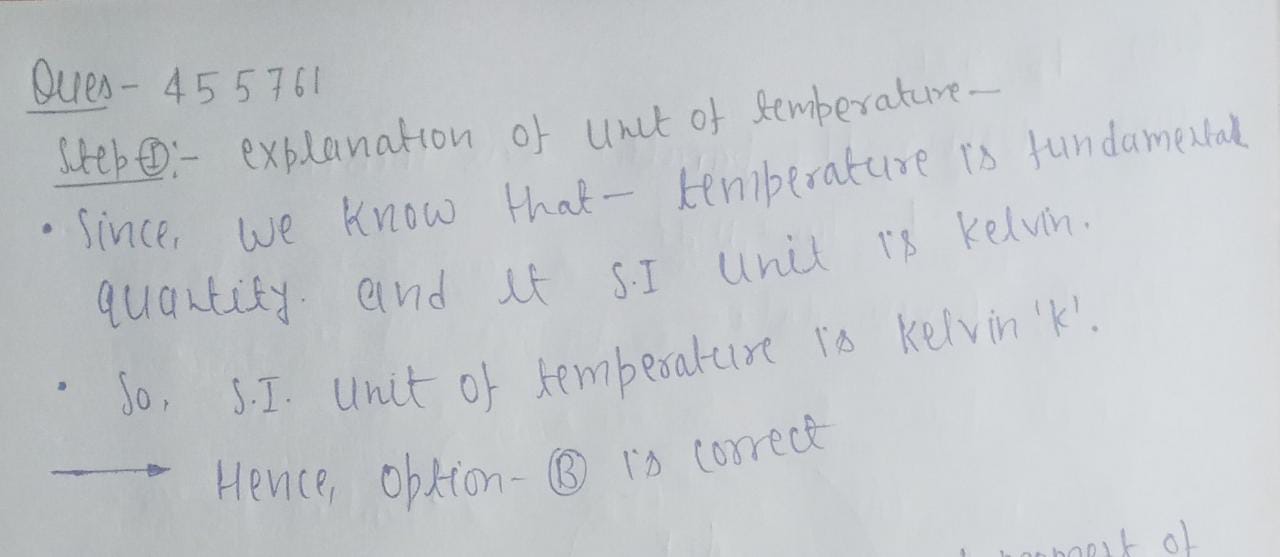 Ques- 455761
Step ①:- explanation of unit of temperature-
• Since, we know that- temperature is fundamental
quantity. and it S.I unit is kelvin.
• So, S.I. unit of temperature is kelvin 'k'.
→ Hence, option- Ⓑ is correct
of